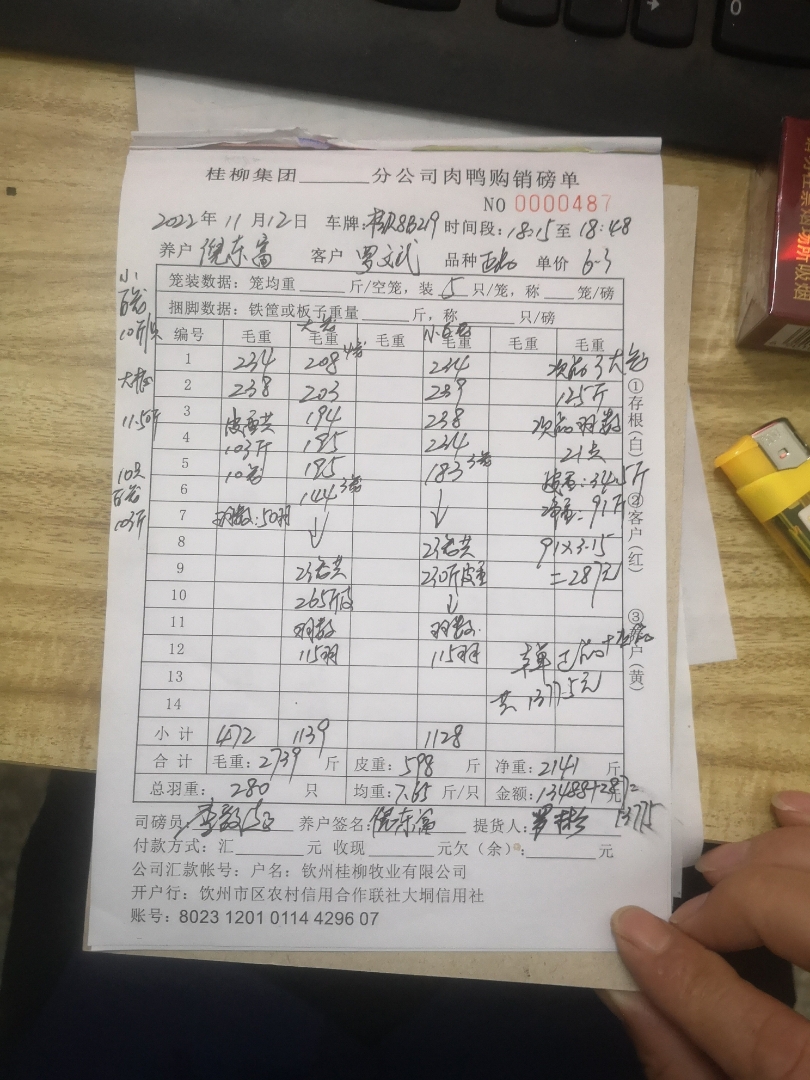 桂柳集团______分公司肉鸭购销磅单
NO 0000487
2022年11月12日 车牌: 8B219 时间段:18:15至18:48
养户 客户 罗文武 品种 单价 6.3
笼装数据: 笼均重______斤/空笼，装5只/笼，称____笼/磅
捆脚数据: 铁筐或板子重量______斤，称______只/磅
小
10斤/只
大
11.5斤
10只
103斤
编号 毛重 毛重 毛重 毛重 毛重 毛重
1 234 208 234 次品3大
2 238 203 239 125斤
3 194 238 次品羽数
4 103斤 195 234 21只
5 195 183 34.5斤
6 144 91斤
7 羽数:50羽
8 91×3.15
9 230斤皮重 =287元
10 265斤皮
11 羽数 羽数
12 115羽 115羽
13 共13775元
14
小计 472 1139 1128
合计 毛重:2739斤 皮重:598斤 净重:2141斤
总羽重: 280 只 均重:7.65斤/只 金额:13488+287=元
13775
司磅员: 养户签名: 提货人:
付款方式: 汇______元 收现______元欠（余）:______元
公司汇款帐号: 户名: 钦州桂柳牧业有限公司
开户行: 钦州市区农村信用合作联社大垌信用社
账号: 8023 1201 0114 4296 07
①存根(白)
②客户(红)
③养户(黄)